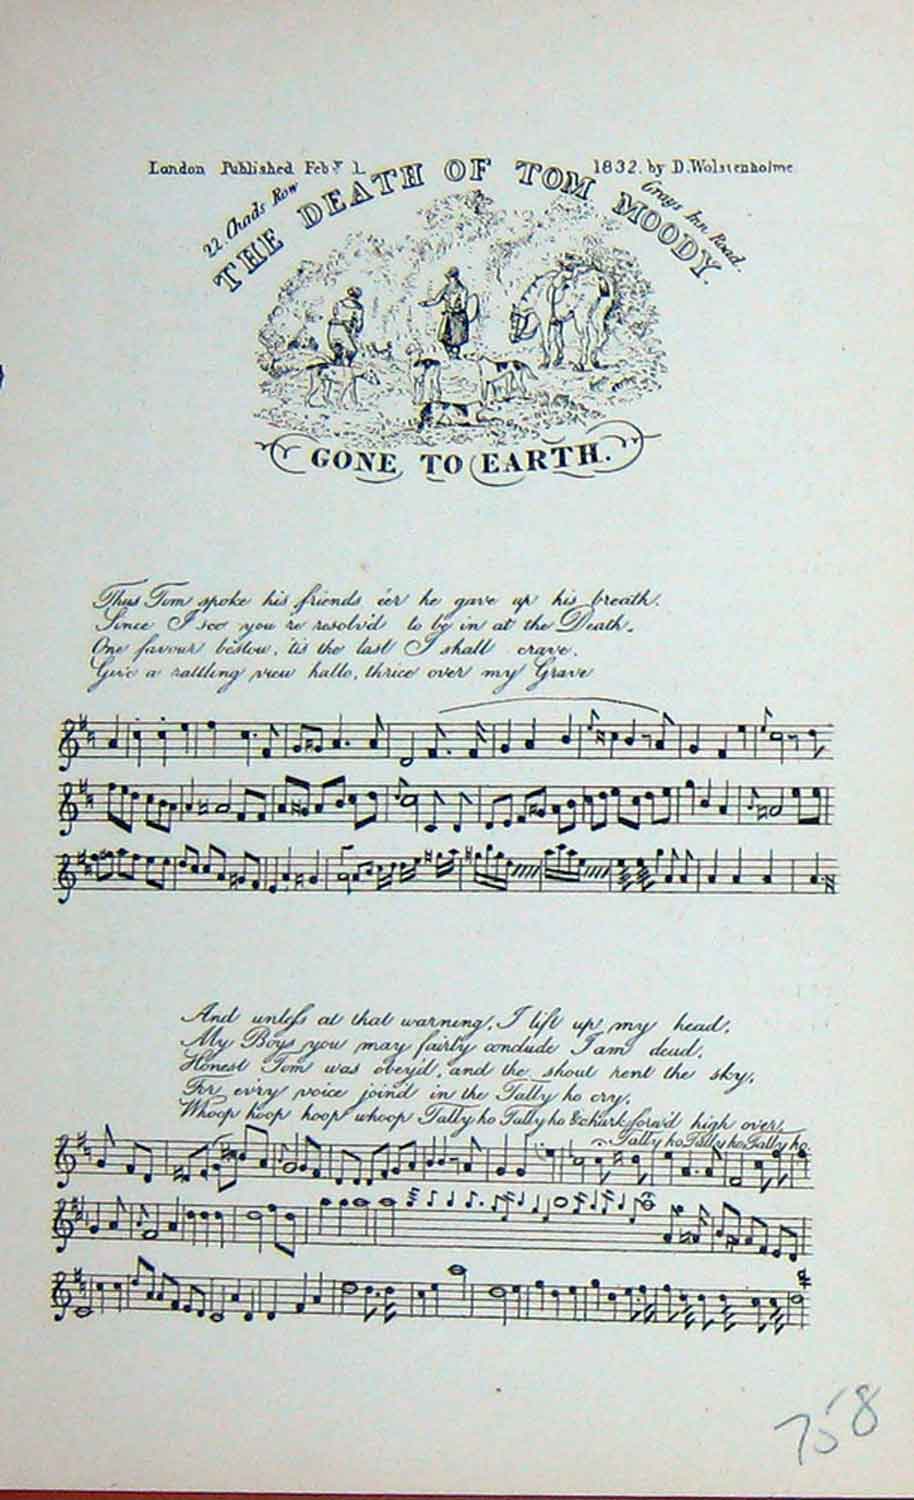 London Published Feby 1 1832. by D. Wolstenholme
22. Chads Row Grays Inn Road.
THE DEATH OF TOM MOODY.
GONE TO EARTH.
Thus Tom spoke his friends e'er he gave up his breath.
Since I see you're resolv'd to be in at the Death.
One favour bestow, 'tis the last I shall crave.
Give a rattling view hallo, thrice over my Grave
And unless at that warning, I lift up my head,
My Boys you may fairly conclude I am dead,
Honest Tom was obey'd, and the shout rent the sky,
For ev'ry voice join'd in the Tally ho cry,
Whoop hoop hoop whoop Tally ho Tally ho &chark forw'd high over,
Tally ho Tally ho Tally ho
758